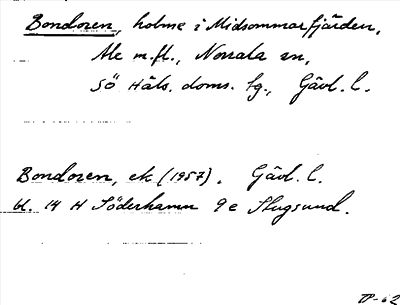 Bondoren, holme i Midsommarfjärden,
Ale m.fl., Norrala sn,
Sö Häls. doms. lg., Gävl. l.
Bondoren, ek (1957). Gävl. l.
bl. 14 H Söderhamn 9 e Stugsund.